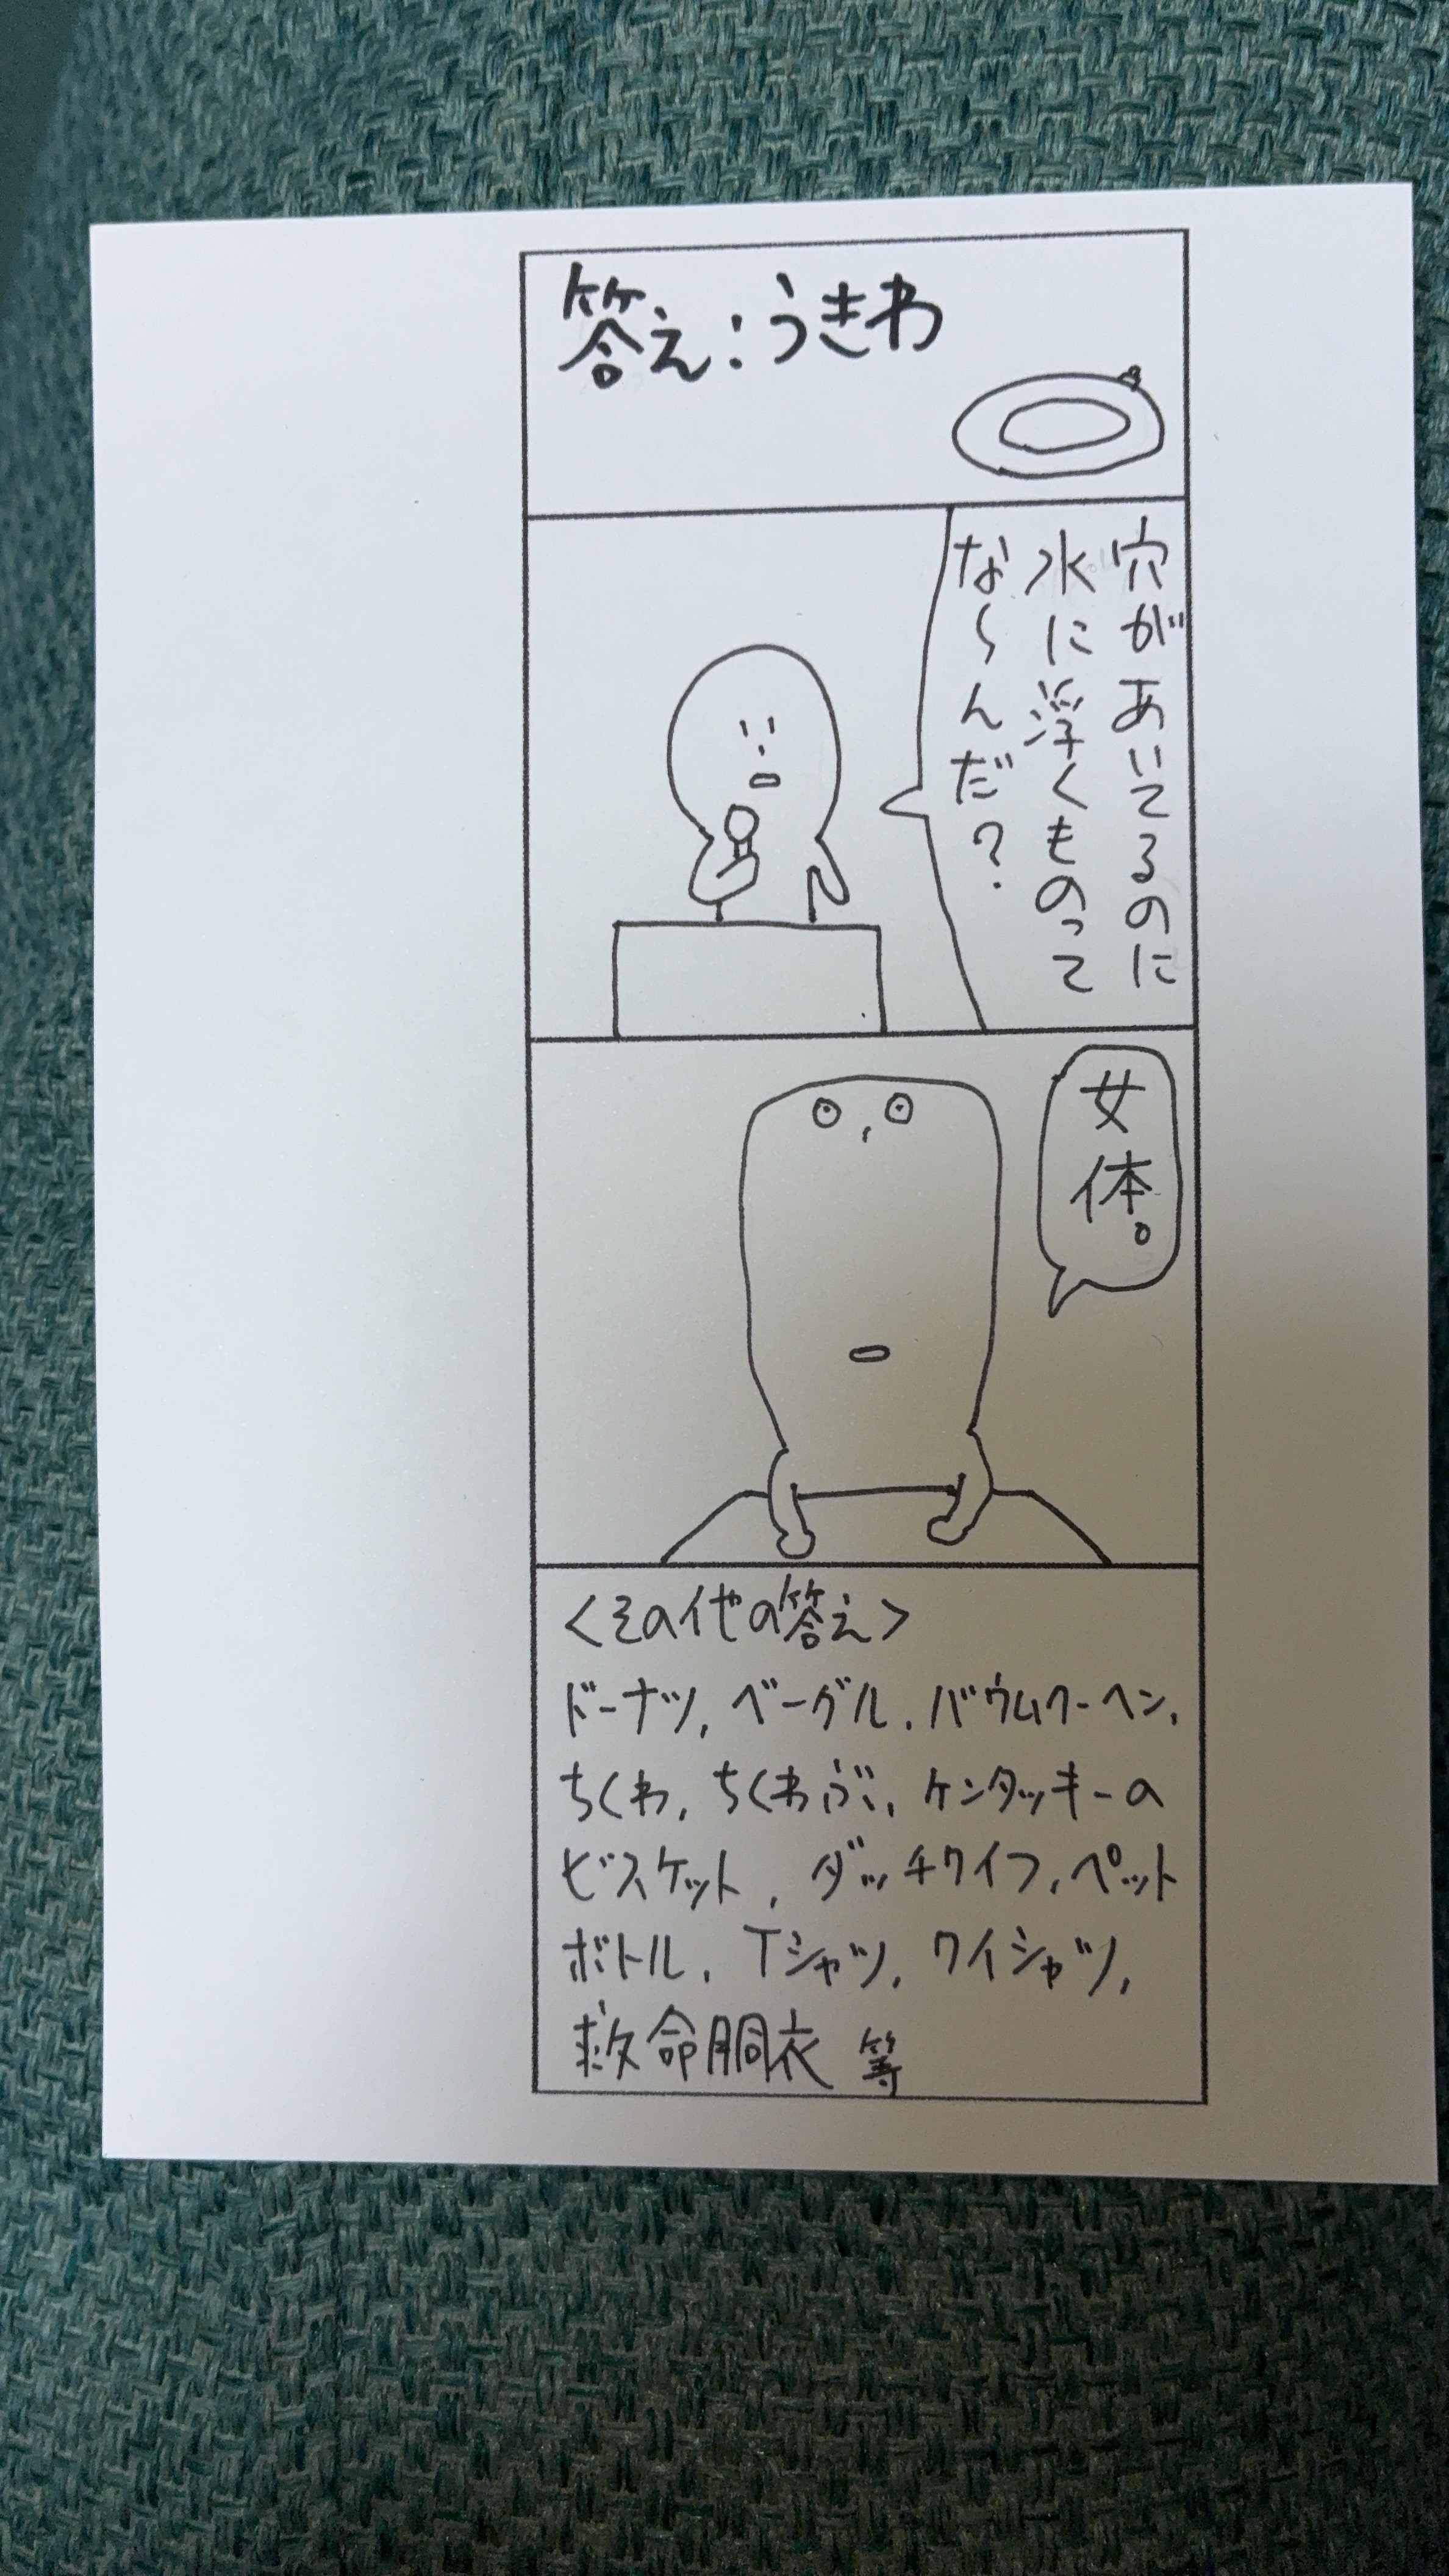 答え:うきわ
穴があいてるのに
水に浮くものって
な〜んだ?
女体。
<その他の答え>
ドーナツ, ベーグル, バウムクーヘン,
ちくわ, ちくわぶ, ケンタッキーの
ビスケット, ダッチワイフ, ペット
ボトル, Tシャツ, ワイシャツ,
救命胴衣 等